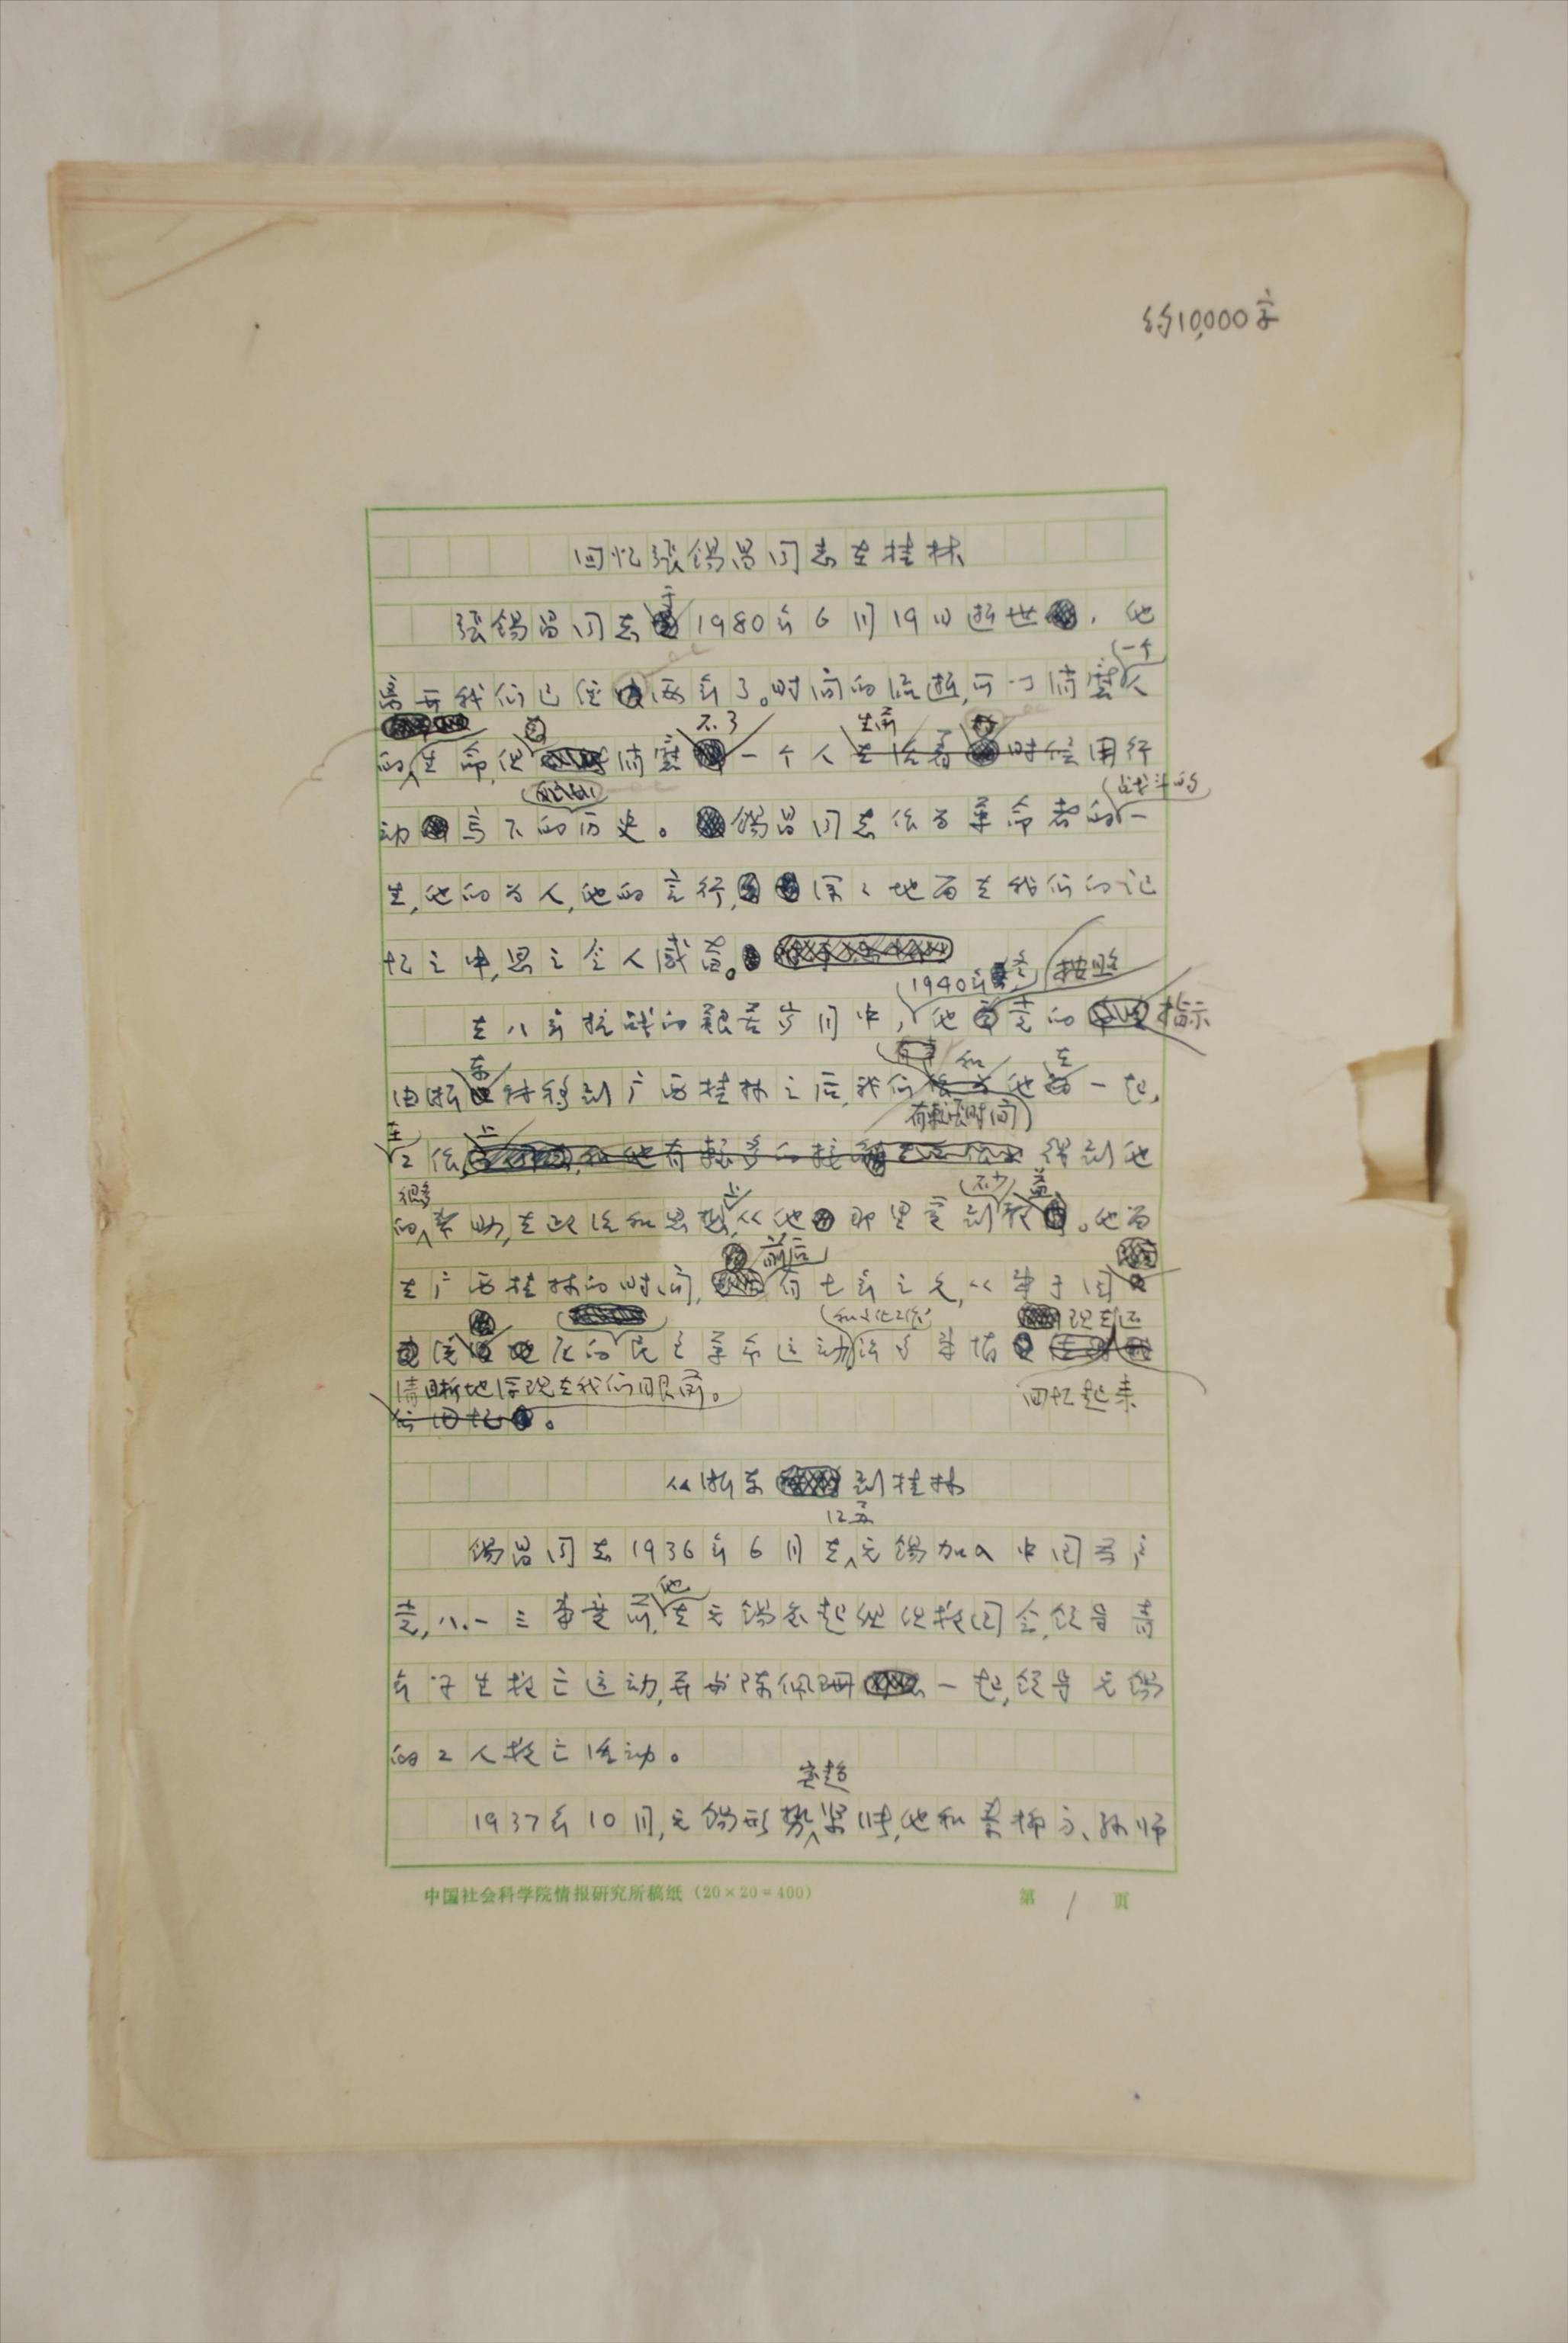 约10,000字
回忆张锡昌同志在桂林
张锡昌同志于1980年6月19日逝世，他
离开我们已经两年了。时间的流逝，可以消磨一个人
的生命，但消磨不了一个人生前用行
动写下的历史。锡昌同志作为革命者的战斗的一
生，他的为人，他的言行，深深地留在我们的记
忆之中，思之令人感奋。
在八年抗战的艰苦岁月中，1940年冬他按照党的指示
由浙东转移到广西桂林之后，我们和他在一起，
在工作上有较长时间得到他
的很多帮助，在政治和思想上从他那里受到不少教益。他留
在广西桂林的时间，前后有七年之久，从事于国
统区的民主革命运动和文化工作许多事情现在还
清晰地浮现在我们眼前。回忆起来
从浙东到桂林
锡昌同志1936年6月在江苏无锡加入中国共产
党，八·一三事变前，他在无锡发起组织救国会，领导青
年学生救亡运动，并与陈佩珊一起，领导无锡
的工人救亡活动。
1937年10月，无锡形势紧张，他和秦柳方、孙师
中国社会科学院情报研究所稿纸（20×20=400） 第1页